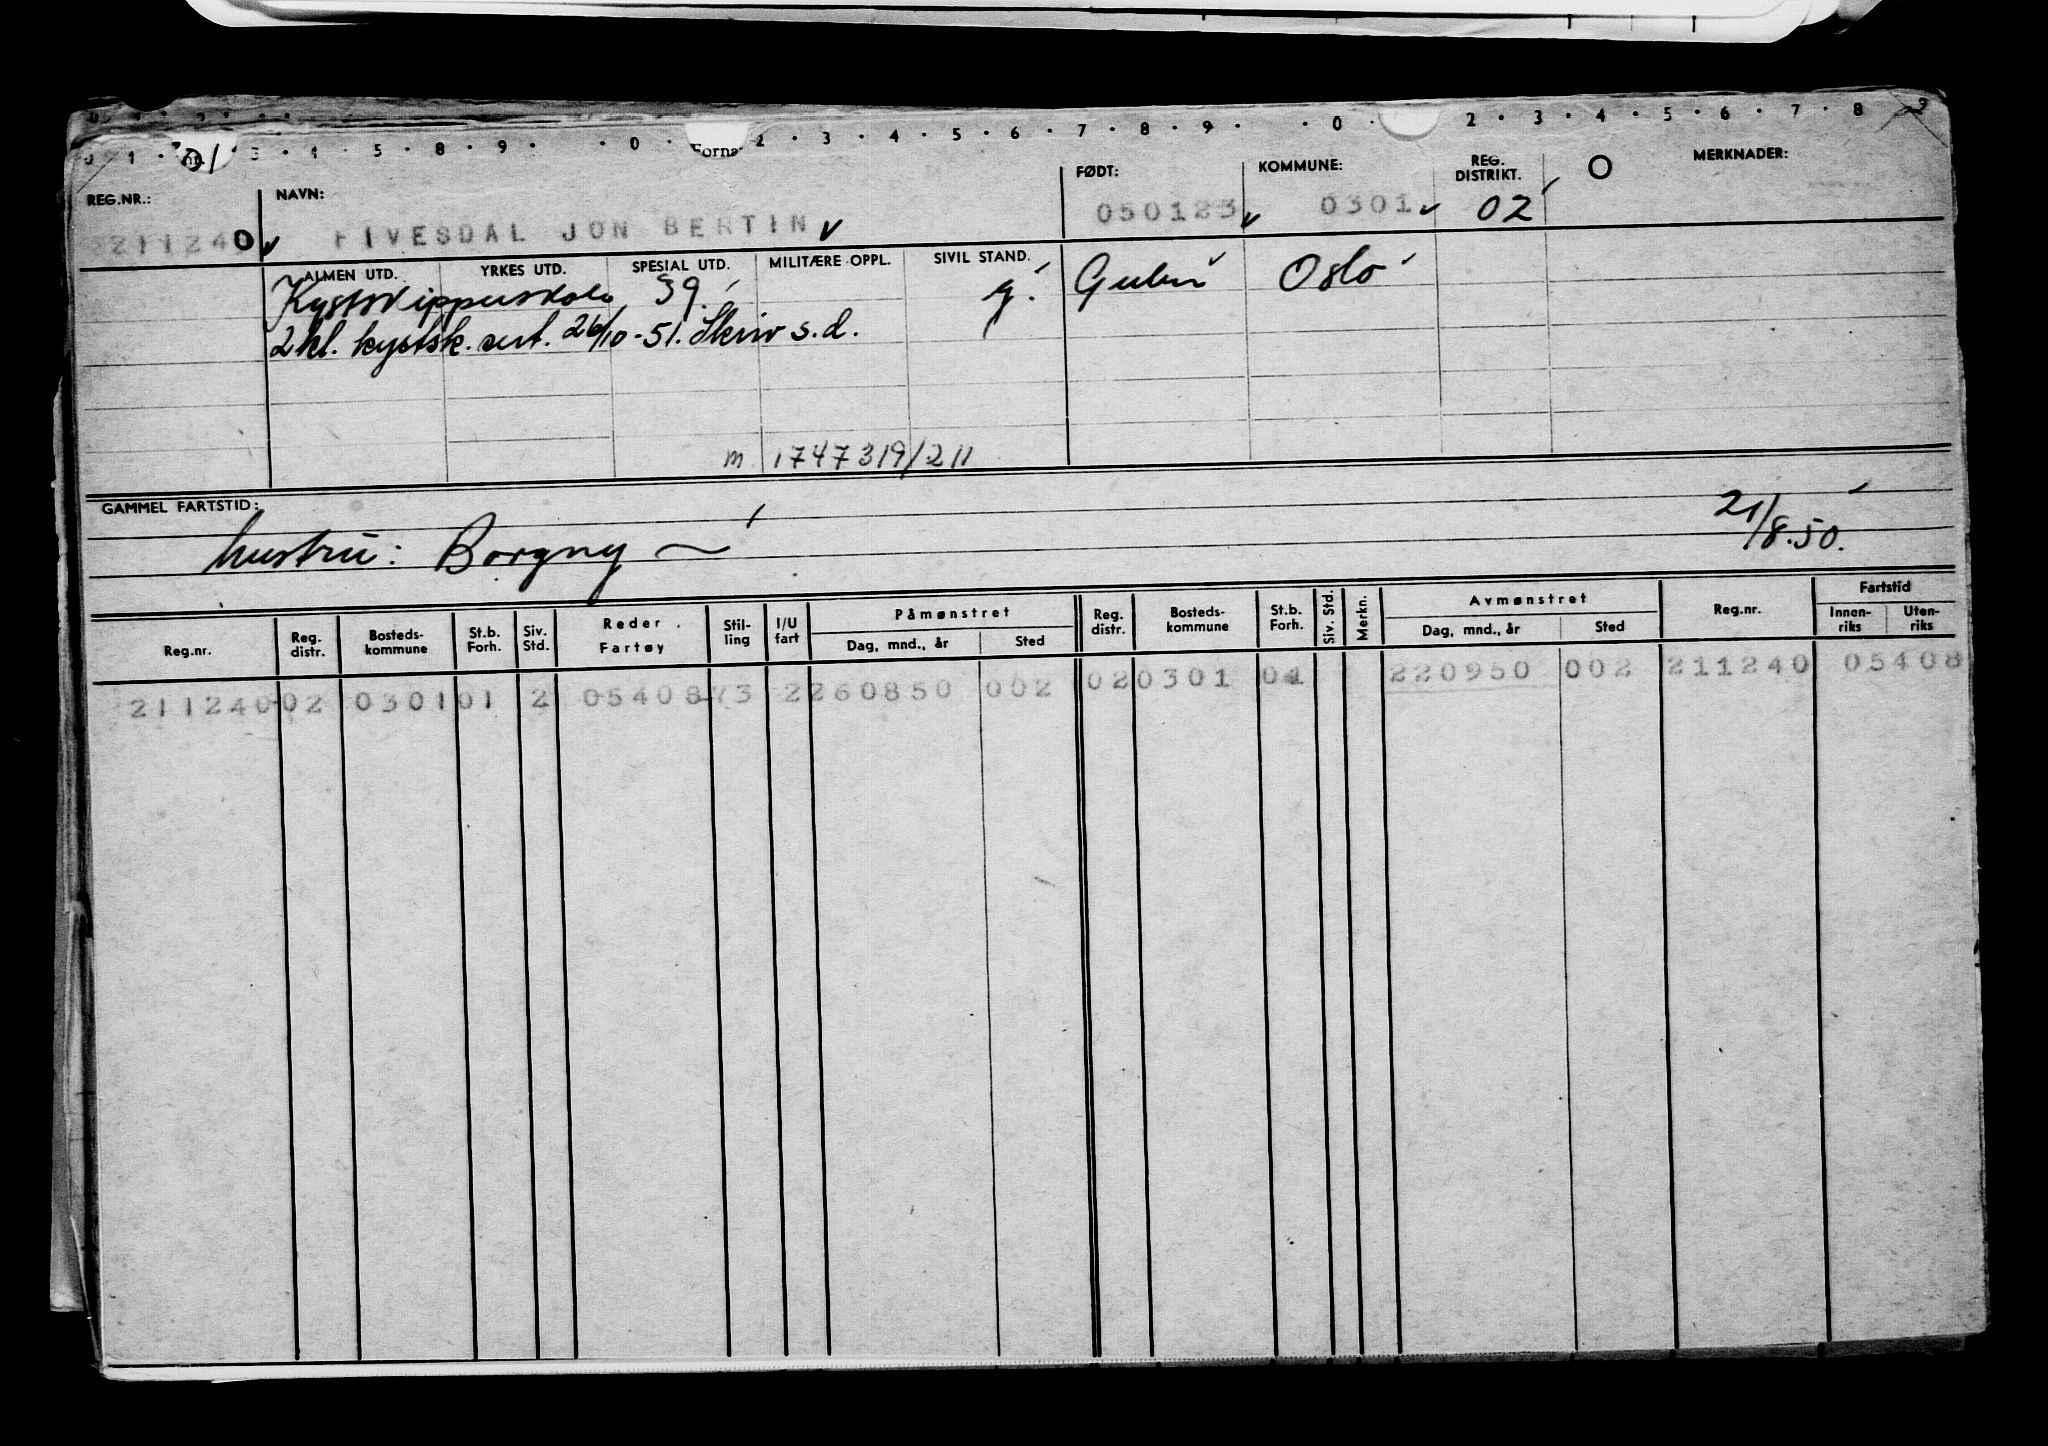 REG.NR.: NAVN: FØDT: KOMMUNE: REG. DISTRIKT. MERKNADER:
211240 FIVESDAL JON BERTIN 050123 0301 02
ALMEN UTD. YRKES UTD. SPESIAL UTD. MILITÆRE OPPL. SIVIL STAND.
Kystskipperskole 39. g. Oslo
2 kl. kystsk. sert. 26/10-51. Skriv s.d.
m 1747319/211
GAMMEL FARTSTID:
21/8.50.
hustru: Borgny
Reg.nr. Reg. distr. Bosteds-kommune St.b. Forh. Siv. Std. Reder Fartøy Stil-ling I/U fart Påmønstret Dag, mnd., år Sted Reg. distr. Bosteds-kommune St.b. Forh. Siv. Std. Merkn. Avmønstret Dag, mnd., år Sted Reg.nr. Fartstid Innen-riks Uten-riks
211240 02 0301 01 2 05408 73 2 260850 002 02 0301 01 220950 002 211240 05408